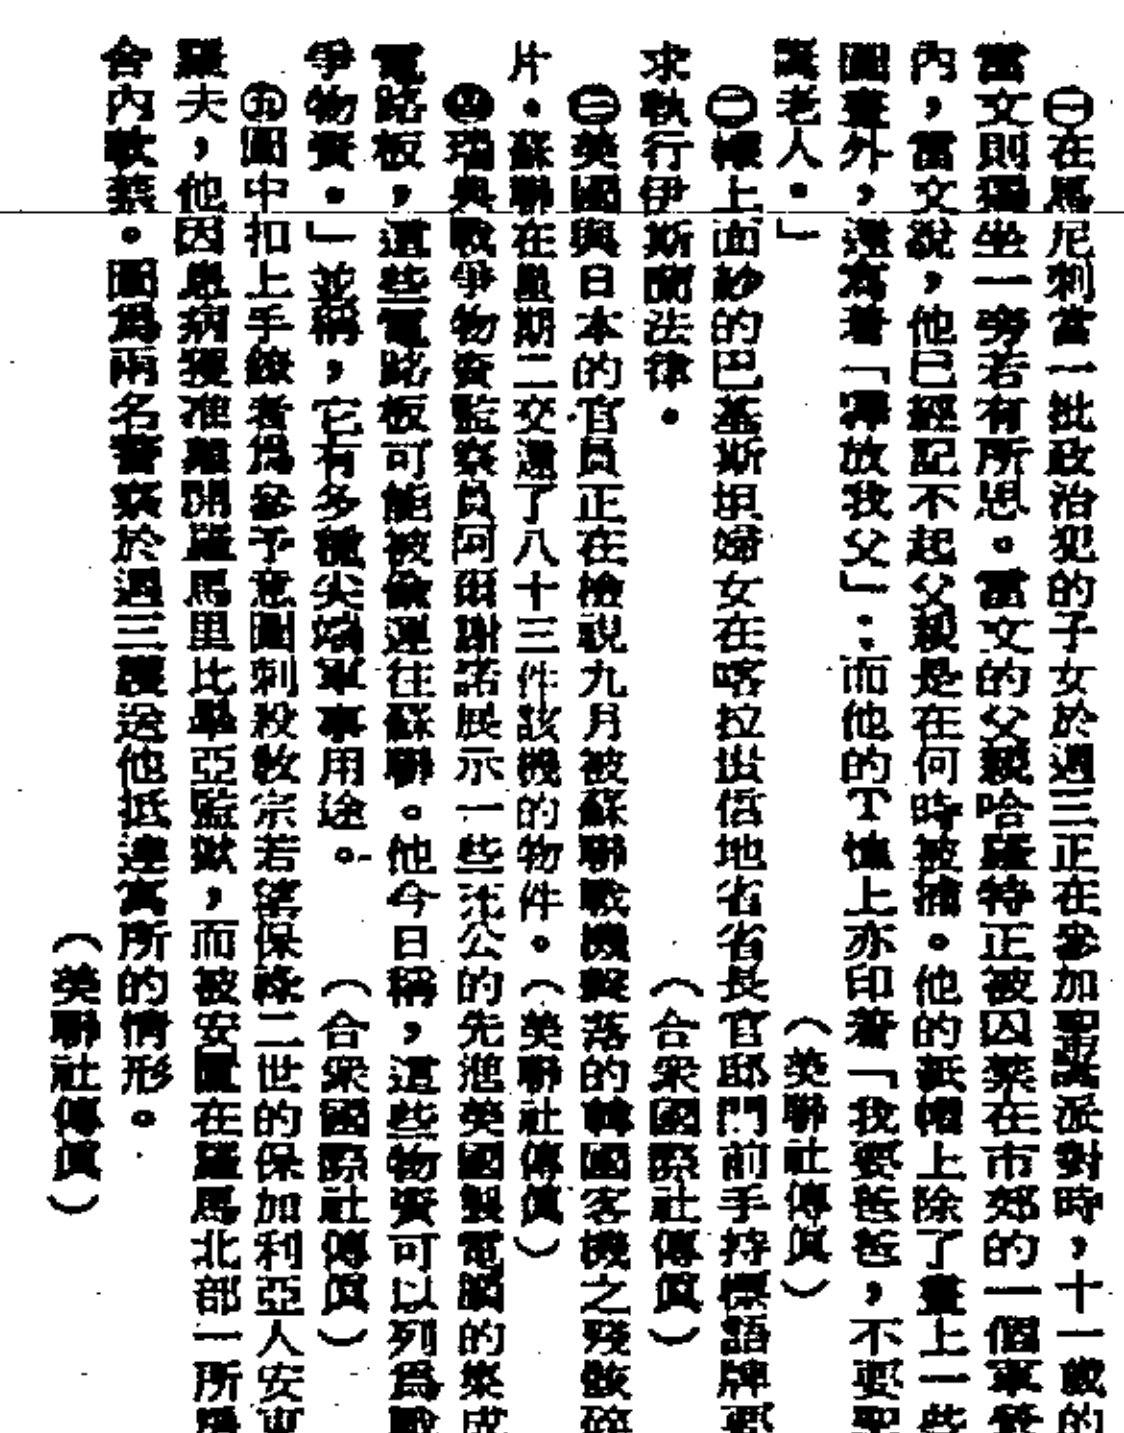 ㊀在馬尼刺當一批政治犯的子女於週三正在參加聖誕派對時，十一歲的
當文則獨坐一旁若有所思。當文的父親哈羅特正被囚禁在市郊的一個軍營
內，當文說，他已經記不起父親是在何時被捕。他的紙帽上除了畫上一些
圖畫外，還寫着「釋放我父」：而他的T恤上亦印着「我要爸爸，不要聖
誕老人。」　（美聯社傳真）
㊁幪上面紗的巴基斯坦婦女在喀拉蚩信地省省長官邸門前手持標語牌要
求執行伊斯蘭法律。　（合衆國際社傳真）
㊂美國與日本的官員正在檢視九月被蘇聯戰機擊落的韓國客機之殘骸碎
片。蘇聯在星期二交還了八十三件該機的物件。（美聯社傳真）
㊃瑞典戰爭物資監察員阿爾謝諾展示一些充公的先進英國製電腦的集成
電路板，這些電路板可能被偷運往蘇聯。他今日稱，這些物資可以列爲戰
爭物資。」並稱，它有多種尖端軍事用途。　（合衆國際社傳真）
㊄圖中扣上手鐐者爲參予意圖刺殺敎宗若望保祿二世的保加利亞人安東
羅夫，他因患病獲准離開羅馬里比舉亞監獄，而被安置在羅馬北部一所
舍內軟禁。圖爲兩名警察於週三護送他抵達寓所的情形。
（美聯社傳真）